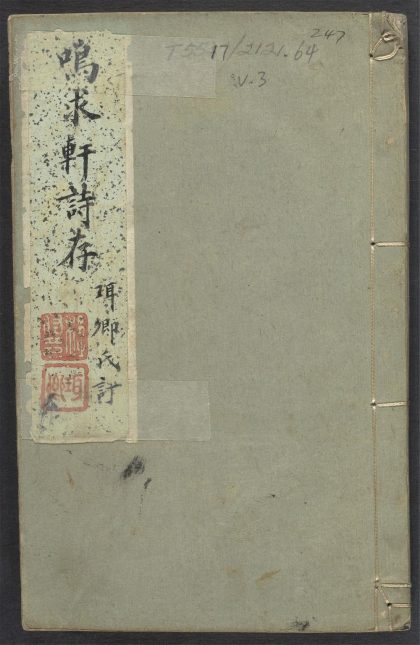 247
T5517/2121.64
v.3
鳴求軒詩存
珥卿氏訂